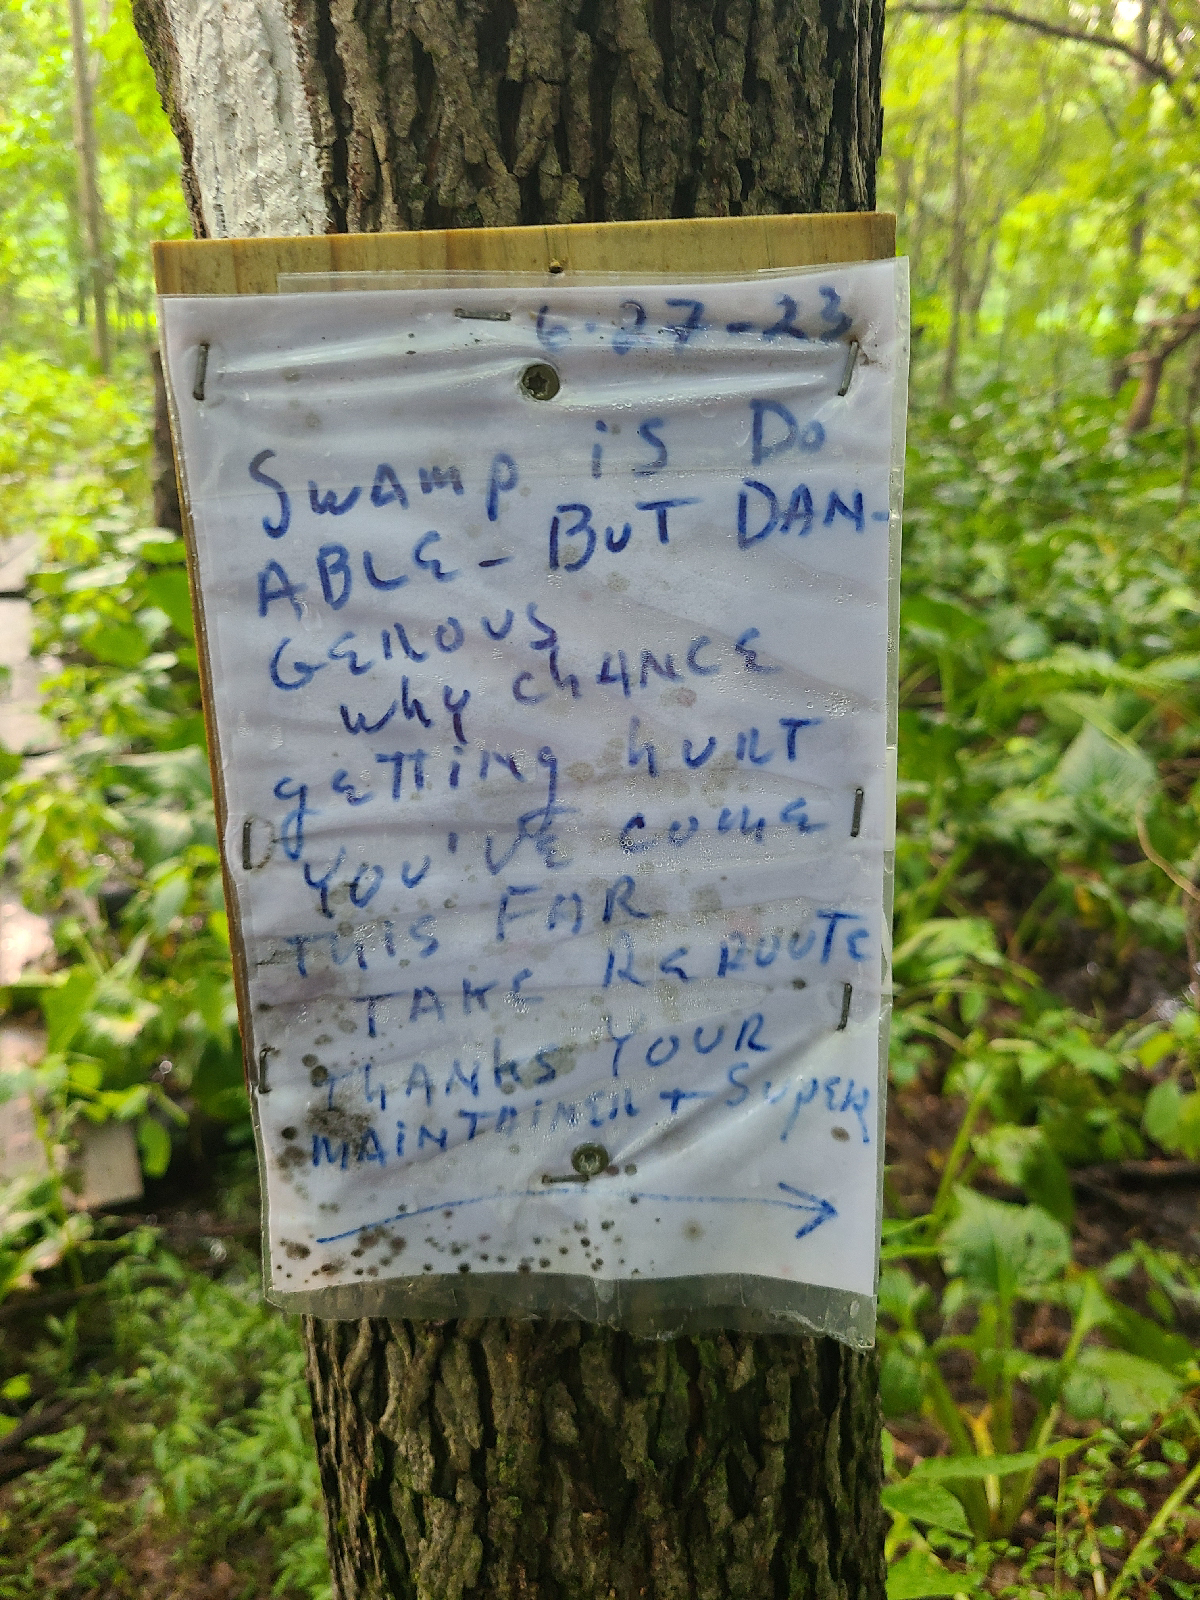 6-27-23
SWAMP iS Do
ABLE - BUT DAN-
GEROUS
why chANCE
gETTiNg hURT
YOU'VE COME
THIS FAR
TAKE REROUTE
THANKS YOUR
MAINTAINER + SUPER